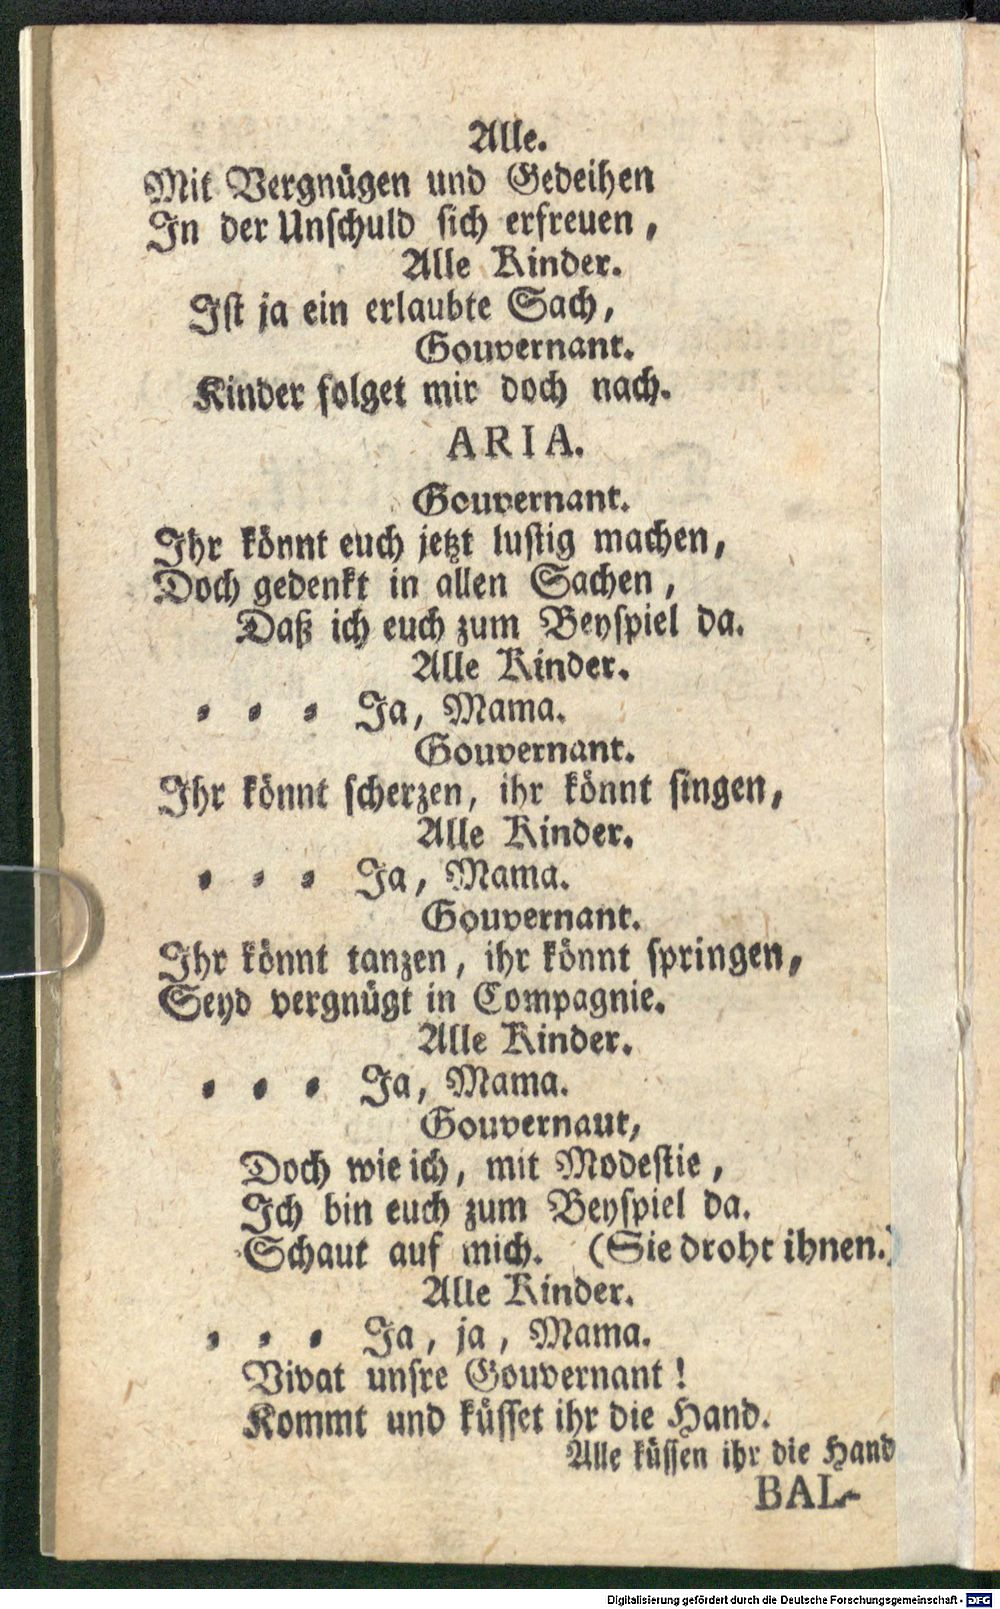 Alle.
Mit Vergnügen und Gedeihen
In der Unschuld sich erfreuen,
Alle Kinder.
Ist ja ein erlaubte Sach,
Gouvernant.
Kinder folget mir doch nach.
ARIA.
Gouvernant.
Ihr könnt euch jetzt lustig machen,
Doch gedenkt in allen Sachen,
Daß ich euch zum Beyspiel da.
Alle Kinder.
= = = Ja, Mama.
Gouvernant.
Ihr könnt scherzen, ihr könnt singen,
Alle Kinder.
= = = Ja, Mama.
Gouvernant.
Ihr könnt tanzen, ihr könnt springen,
Seyd vergnügt in Compagnie.
Alle Kinder.
= = = Ja, Mama.
Gouvernaut,
Doch wie ich, mit Modestie,
Ich bin euch zum Beyspiel da.
Schaut auf mich. (Sie droht ihnen.)
Alle Kinder.
= = = Ja, ja, Mama.
Vivat unsre Gouvernant!
Kommt und küsset ihr die Hand.
Alle küssen ihr die Hand
BAL-
Digitalisierung gefördert durch die Deutsche Forschungsgemeinschaft - DFG